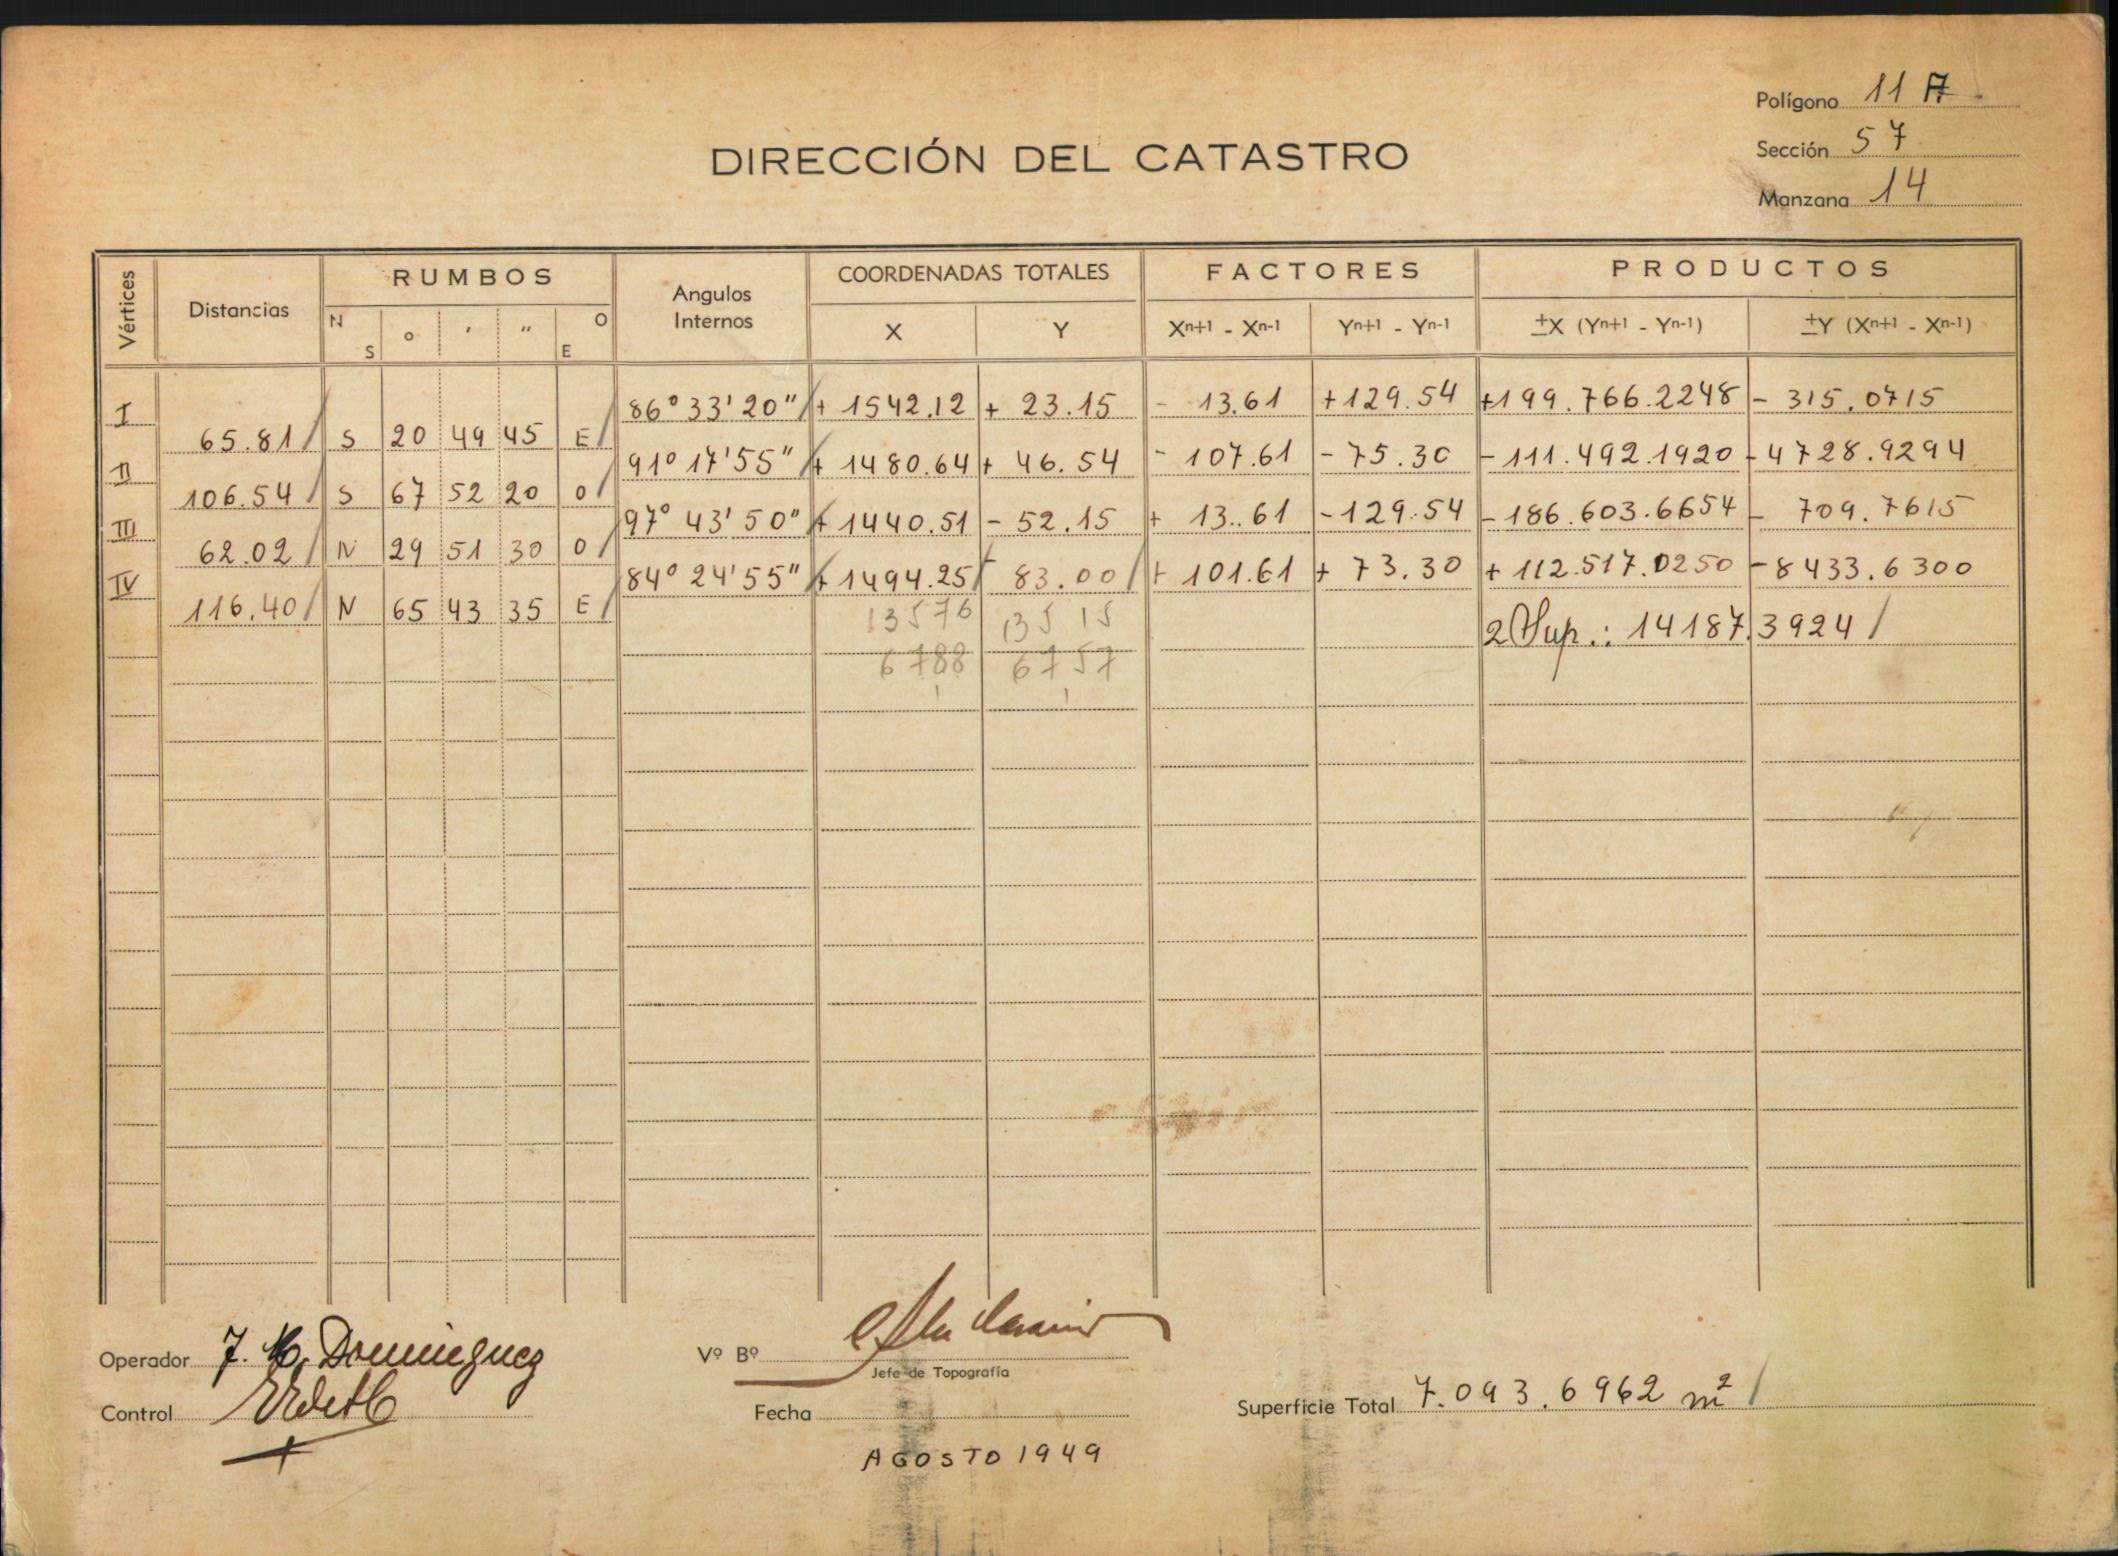 Polígono 11 A.
Sección 57
Manzana 14
DIRECCIÓN DEL CATASTRO
Vértices Distancias RUMBOS Angulos Internos COORDENADAS TOTALES FACTORES PRODUCTOS
N S o ' " O E X Y Xn+1 - Xn-1 Yn+1 - Yn-1 ±X (Yn+1 - Yn-1) ±Y (Xn+1 - Xn-1)
I 86° 33' 20" + 1542.12 + 23.15 - 13.61 +129.54 +199.766.2248 - 315.0715
65.81 S 20 49 45 E
II 91° 17' 55" + 1480.64 + 46.54 - 107.61 - 75.30 - 111.492.1920 - 4728.9294
106.54 S 67 52 20 O
III 97° 43' 50" + 1440.51 - 52.15 + 13.61 -129.54 - 186.603.6654 - 709.7615
62.02 N 29 51 30 O
IV 84° 24' 55" + 1494.25 - 83.00 + 101.61 + 73.30 + 112.517.0250 - 8433.6300
116.40 N 65 43 35 E
13576 13515
2 Sup.: 14187.3924
6788 6757
Operador F. M. Dominguez
Vº Bº
Jefe de Topografía
Control
Fecha
Superficie Total 7.093.6962 m²
AGOSTO 1949